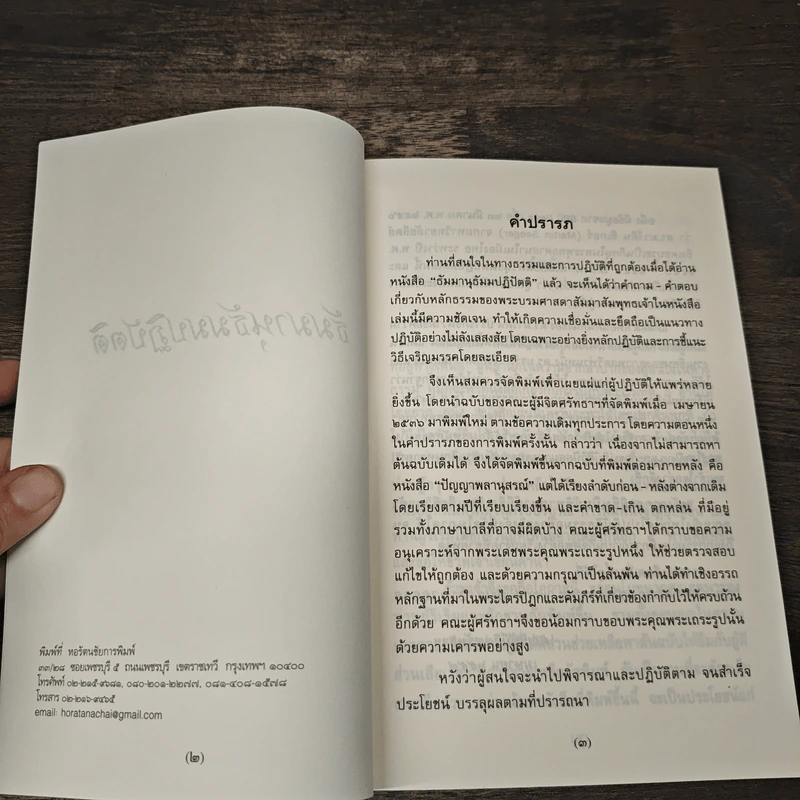 พิมพ์ที่ หอรัตนชัยการพิมพ์
๓๓/๒๘ ซอยเพชรบุรี ๕ ถนนเพชรบุรี เขตราชเทวี กรุงเทพฯ ๑๐๔๐๐
โทรศัพท์ ๐๒-๒๑๕-๙๖๘๑, ๐๘๐-๒๐๑-๒๒๗๗, ๐๘๑-๔๐๘-๑๕๗๘
โทรสาร ๐๒-๒๑๖-๙๔๖๕
email: horatanachai@gmail.com
(๒)
คำปรารภ
ท่านที่สนใจในทางธรรมและการปฏิบัติที่ถูกต้องเมื่อได้อ่าน
หนังสือ “ธัมมานุธัมมปฏิปัตติ” แล้ว จะเห็นได้ว่าคำถาม - คำตอบ
เกี่ยวกับหลักธรรมของพระบรมศาสดาสัมมาสัมพุทธเจ้าในหนังสือ
เล่มนี้มีความชัดเจน ทำให้เกิดความเชื่อมั่นและยึดถือเป็นแนวทาง
ปฏิบัติอย่างไม่ลังเลสงสัย โดยเฉพาะอย่างยิ่งหลักปฏิบัติและการชี้แนะ
วิธีเจริญมรรคโดยละเอียด
จึงเห็นสมควรจัดพิมพ์เพื่อเผยแผ่แก่ผู้ปฏิบัติให้แพร่หลาย
ยิ่งขึ้น โดยนำฉบับของคณะผู้มีจิตศรัทธาฯที่จัดพิมพ์เมื่อ เมษายน
๒๕๓๖ มาพิมพ์ใหม่ ตามข้อความเดิมทุกประการ โดยความตอนหนึ่ง
ในคำปรารภของการพิมพ์ครั้งนั้น กล่าวว่า เนื่องจากไม่สามารถหา
ต้นฉบับเดิมได้ จึงได้จัดพิมพ์ขึ้นจากฉบับที่พิมพ์ต่อมาภายหลัง คือ
หนังสือ “ปัญญาพลานุสรณ์” แต่ได้เรียงลำดับก่อน - หลังต่างจากเดิม
โดยเรียงตามปีที่เรียบเรียงขึ้น และคำขาด-เกิน ตกหล่น ที่มีอยู่
รวมทั้งภาษาบาลีที่อาจมีผิดบ้าง คณะผู้ศรัทธาฯได้กราบขอความ
อนุเคราะห์จากพระเดชพระคุณพระเถระรูปหนึ่ง ให้ช่วยตรวจสอบ
แก้ไขให้ถูกต้อง และด้วยความกรุณาเป็นล้นพ้น ท่านได้ทำเชิงอรรถ
หลักฐานที่มาในพระไตรปิฎกและคัมภีร์ที่เกี่ยวข้องกำกับไว้ให้ครบถ้วน
อีกด้วย คณะผู้ศรัทธาฯจึงขอน้อมกราบขอบพระคุณพระเถระรูปนั้น
ด้วยความเคารพอย่างสูง
หวังว่าผู้สนใจจะนำไปพิจารณาและปฏิบัติตาม จนสำเร็จ
ประโยชน์ บรรลุผลตามที่ปรารถนา
(๓)